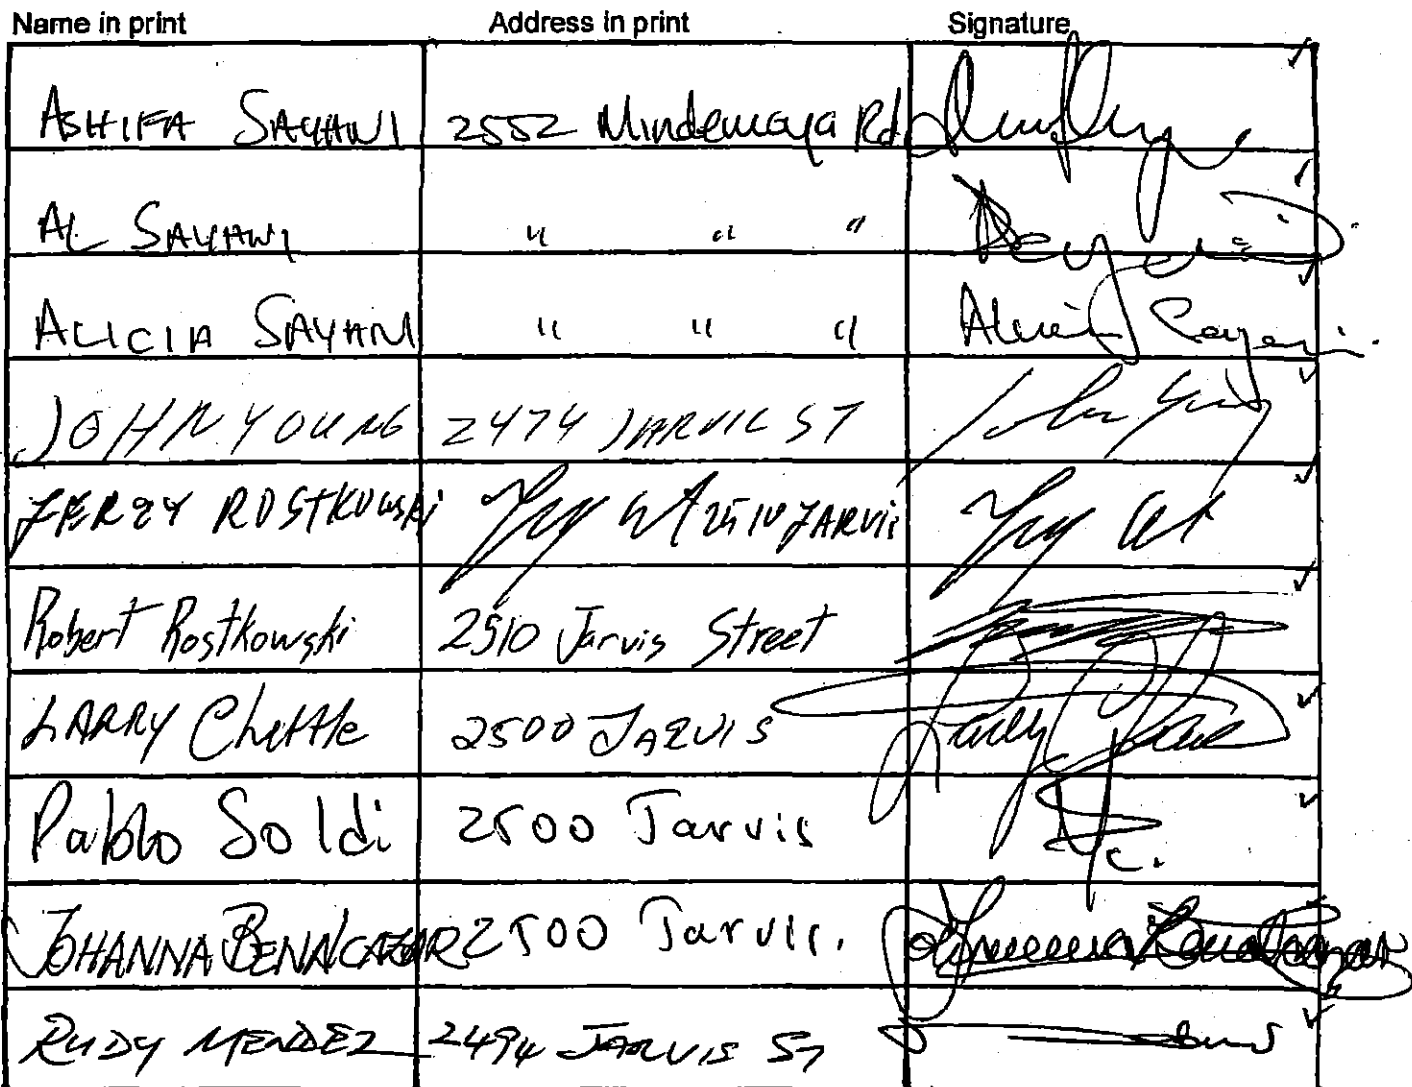 Name in print Address in print Signature
ASHIFA SAYANI 2552 Mindemoya Rd.
AL SAYANI " " "
ALICIA SAYANI " " " Alicia Sayani
JOHN YOUNG 2474 JARVIS ST John Young
JERZY ROSTKOWSKI 2510 JARVIS
Robert Rostkowski 2510 Jarvis Street
LARRY Chettle 2500 JARVIS
Pablo Soldi 2500 Jarvis
JOHANNA BENALCAZAR 2500 Jarvis.
RUDY MENDEZ 2494 JARVIS ST